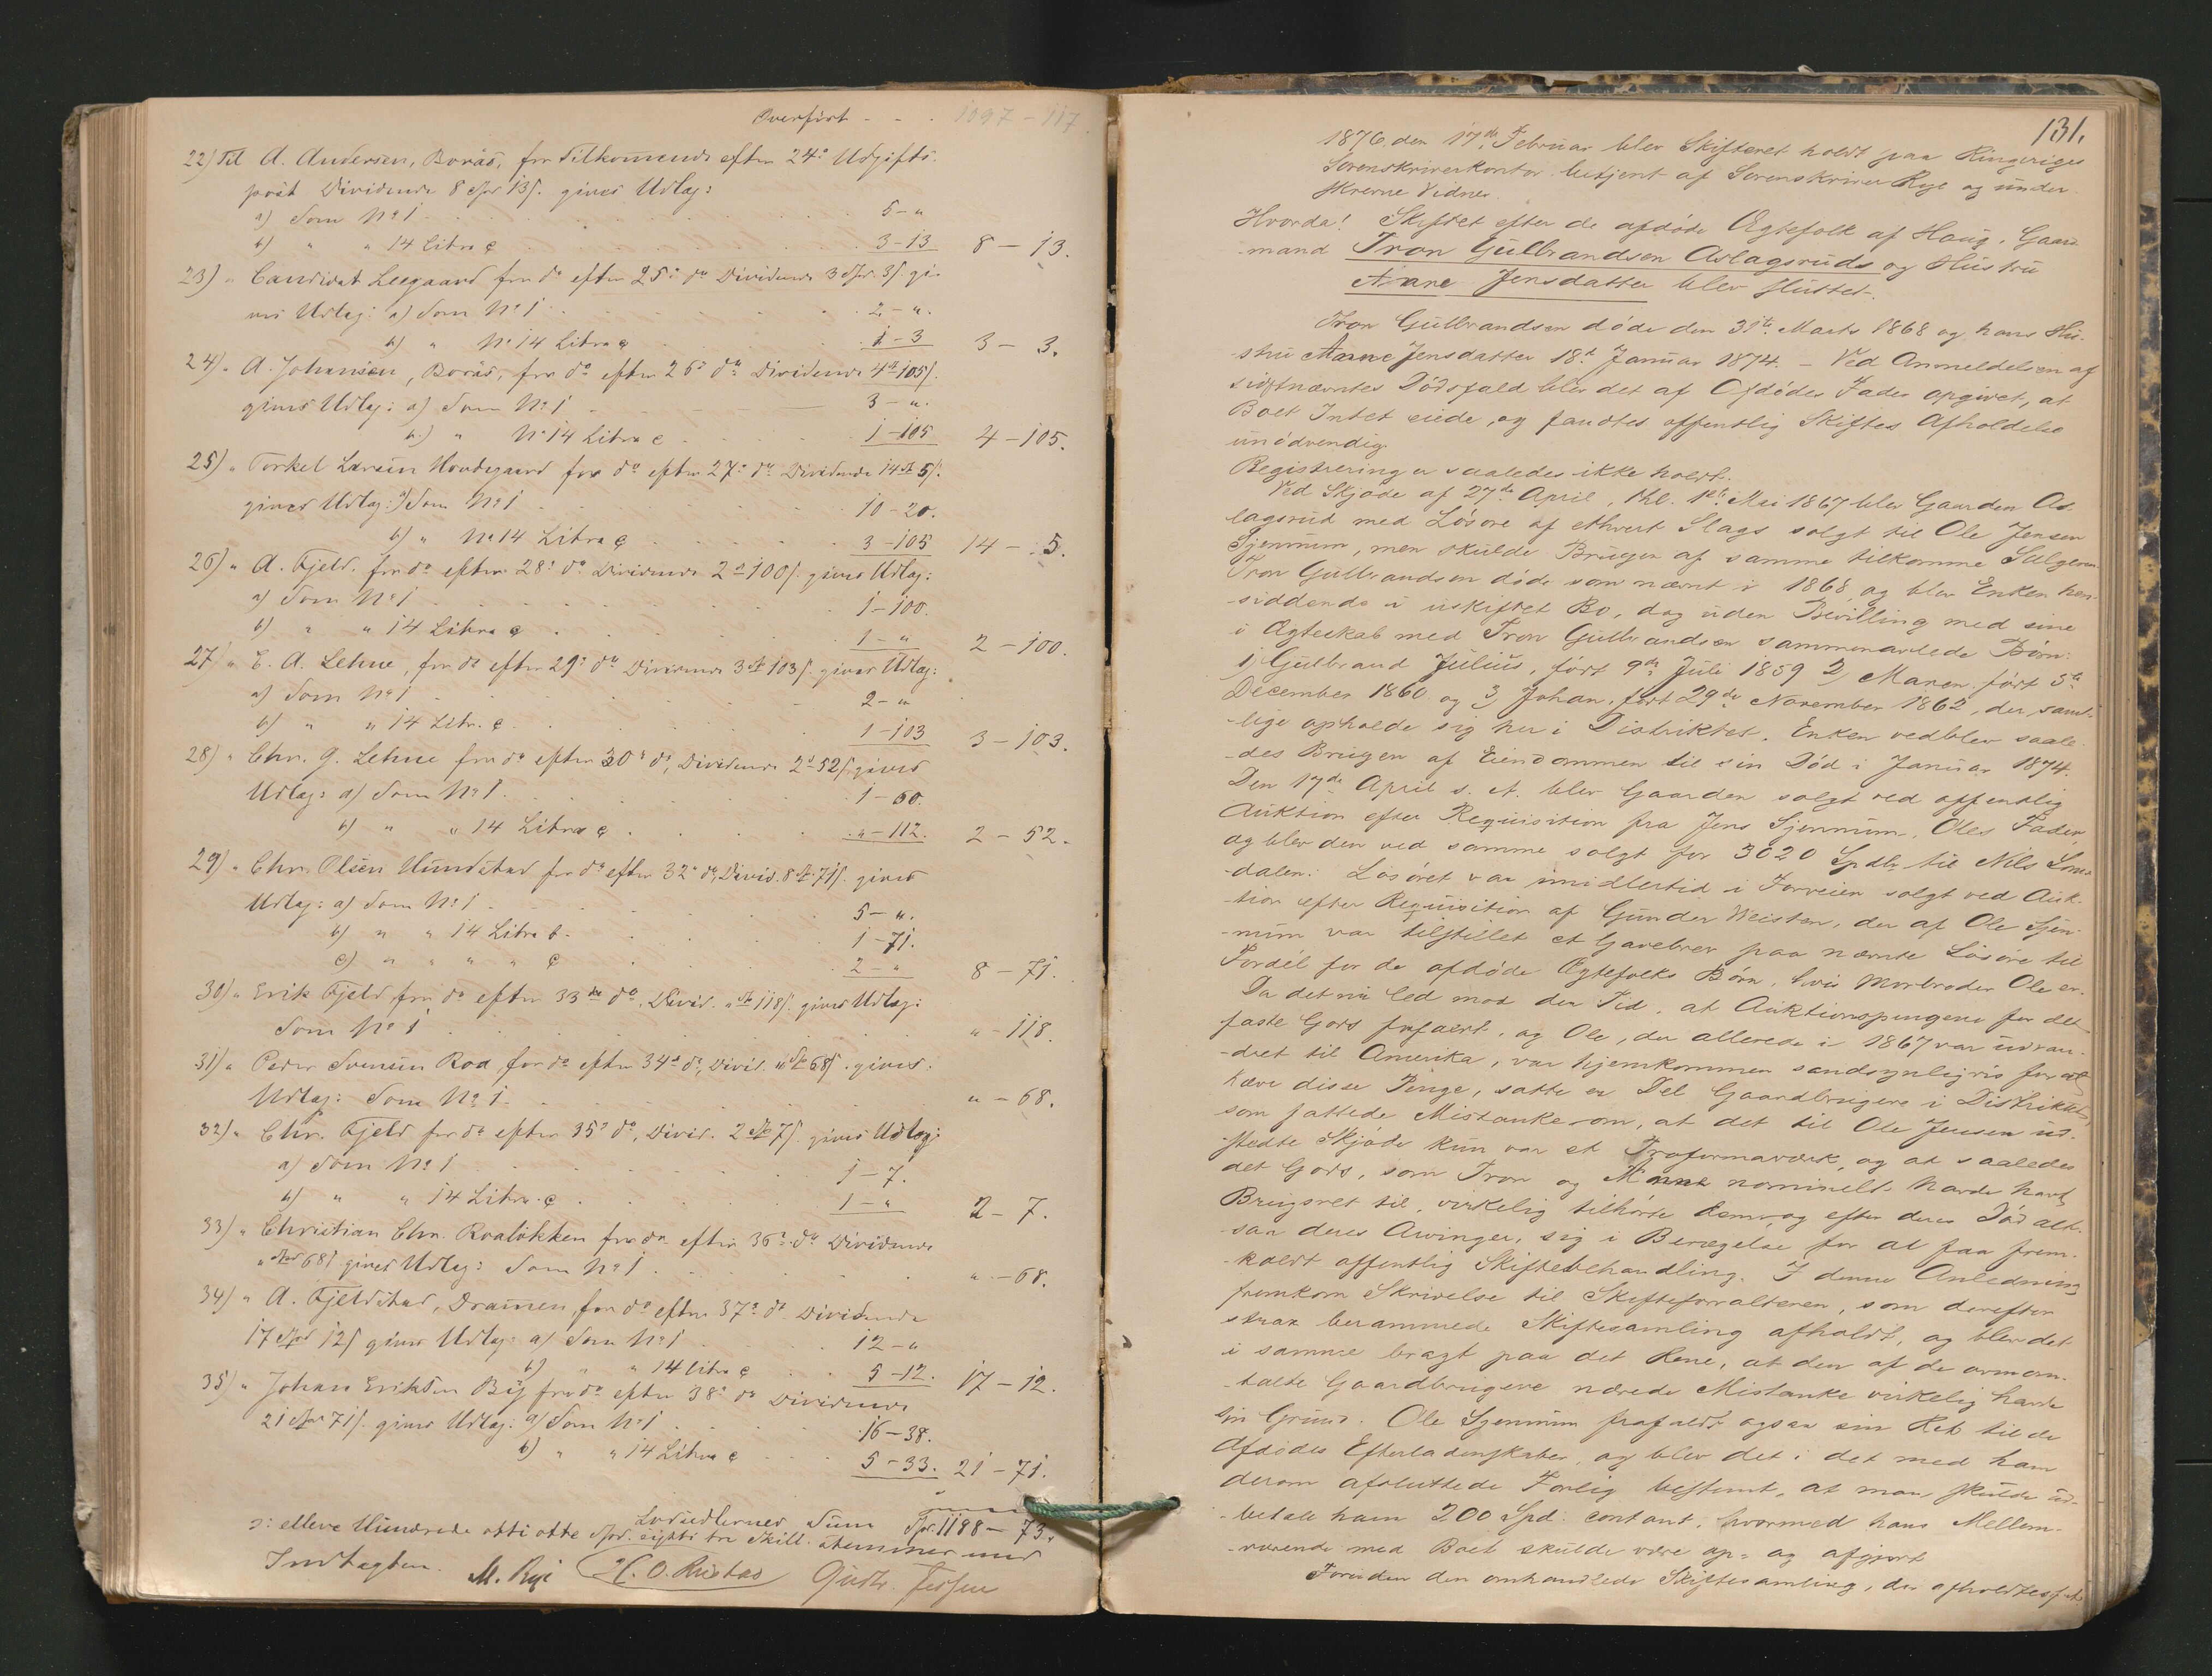 Overført - - - 1097 - 117.
22) Til A. Andersen, Borås, for Tilkommende efter 24de Udgifts-
post Dividende 8 Spd 13 s. gives Udlæg:
a) Som No 1 5 - "
b) " " 14 Litra c 3 - 13 8 - 13.
23) " Candidat Leegaard for do efter 25de do Dividende 3 Spd. 3 s. gi-
ves Udlæg: a) Som No 1 2 - ".
b) " No 14 Litra c 1 - 3 3 - 3.
24) " A. Johansen, Borås, for do efter 26de do Dividende 4 Spd 105 s.
gives Udlæg: a) Som No 1 3 - ".
b.) " No 14 Litra c 1 - 105 4 - 105.
25) " Torkel Larsen Hovdegaard for do efter 27de do Dividende 14 Spd 5 s.
gives Udlæg: a) Som No 1 10 - 20.
b) " No 14 Litra c 3 - 105 14 - 5.
26) " A. Fjeld. for do efter 28de do Dividende 2 Spd 100 s. gives Udlæg:
a) Som No 1 1 - 100.
b) " " 14 Litra c 1 - " 2 - 100.
27) " E. A. Lehne, for do efter 29de do Dividende 3 Spd 103 s. gives Udlæg:
a) Som No 1 2 - "
b) " " 14 Litr. c 1 - 103 3 - 103.
28) " Chr. G. Lehne for do efter 30de do, Dividende 2 Spd 52 s. gives
Udlæg: a) Som No 1 1 - 60.
b) " " 14 Litra c " - 112. 2 - 52.
29) " Chr. Olsen Hundstad for do efter 32de do, Divid. 8 Spd 71 s. gives
Udlæg: a) Som No 1 5 - ".
b) " " 14 Litra b. 1 - 71.
c) " " " " c 2 - " 8 - 71.
30) " Erik Fjeld, for do efter 33de do, Divid. " Spd 118 s. gives Udlæg:
Som No 1 " - 118.
31) " Peder Svensen Roa for do efter 34de do, Divid. " Spd 68 s. gives
Udlæg: Som No 1. " - 68.
32) " Chr. Fjeld for do efter 35de do, Divid. 2 Spd 7 s. gives Udlæg:
a) Som No 1 1 - 7.
b) " " 14 Litra. c 1 - " 2 - 7.
33) " Christian Chr. Roaløkken for do efter 36de do Dividende
" Spd 68 s. gives Udlæg: Som No 1 " - 68.
34) " A. Fjeldstad, Dramen, for do efter 37de do Dividende
17 Spd 12 s gives Udlæg: a) Som No 1 12 - "
b) " " 14 Litra c 5 - 12. 17 - 12.
35) " Johan Eriksen By for do efter 38de do Dividende
21 Spd 71 s. gives Udlæg: a) Som No 1 16 - 38.
b) " " 14 Litra c 5 - 33. 21 - 71.
Udlæggenes Sum Spd. 1188 - 73.
ɔ: elleve Hundrede otti otte Spd. sytti tre Skill. stemmer med
Indtægten. M. Rye H. O. Ristad Gustv. Jessen
131.
1876, den 17de Februar blev Skifteret holdt paa Ringeriges
Sorenskriverkontor betjent af Sorenskriver Rye og under-
skrevne Vidner.
Hvorda! Skiftet efter de afdøde Ægtefolk af Haug, Gaard-
mand Tron Gulbrandsen Aslagsruds og Hustru
Anne Jensdatter blev sluttet.
Tron Gulbrandsen døde den 31te Marts 1868 og hans Hu-
stru Anne Jensdatter 18de Januar 1874. - Ved Anmeldelsen af
sidstnævntes Dødsfald blev det af Afdødes Fader opgivet, at
Boet Intet eiede, og fandtes offentlig Skiftes Afholdelse
unødvendig.
Registrering er saaledes ikke holdt.
Ved Skjøde af 27de April, thl. 1ste Mai 1867 blev Gaarden As-
lagsrud med Løsøre af ethvert Slags solgt til Ole Jensen
Sjennum, men skulde Brugen af samme tilkomme Sælgeren.
Tron Gulbrandsen døde som nævnt i 1868, og blev Enken hen-
siddende i uskiftet Bo, dog uden Bevilling med sine
i Ægteskab med Tron Gulbrandsen sammenavlede Børn:
1) Gulbrand Julius, født 9de Juli 1859 2) Maren født 5te
December 1860 og 3) Johan, født 29de November 1862, der samt-
lige opholde sig her i Distriktet. Enken vedblev saale-
des Brugen af Eiendommen til sin Død i Januar 1874.
Den 17de April s. A. blev Gaarden solgt ved offentlig
Auktion efter Requisition fra Jens Sjennum, Oles Fader,
og blev den ved samme solgt for 3020 Spdlr til Nils
dalen. Løsøret var imidlertid i Forveien solgt ved Auk-
tion efter Requisition af Gunder Weisten, der af Ole Sjen-
num var tilstillet et Gavebrev paa nævnte Løsøre til
Fordel for de afdøde Ægtefolks Børn, hvis Morbroder Ole er.
Da det nu led mod den Tid, at Auktionspengene for det
faste Gods forfaldt, og Ole, der allerede i 1867 var udvan-
dret til Amerika, var hjemkommen sandsynligvis for at
hæve disse Penge, satte en Del Gaardbrugere i Distriktet,
som fattede Mistanke om, at det til Ole Jensen ud-
stedte Skjøde kun var et Proformaværk, og at saaledes
det Gods, som Tron og Anne nominelt havde havt
Brugsret til, virkelig tilhørte dem, og efter deres Død alt-
saa deres Arvinger, sig i Bevægelse for at faa frem-
kaldt offentlig Skiftebehandling. I denne Anledning
fremkom Skrivelse til Skifteforvalteren, som derefter
strax berammede Skiftesamling afholdt, og blev det
i samme bragt paa det Rene, at den af de ovenom-
talte Gaardbrugere nærede Mistanke virkelig havde
sin Grund. Ole Sjennum frafaldt ogsaa sin Ret til de
Afdødes Efterladenskaber, og blev det i det med ham
derom afsluttede Forlig bestemt, at man skulde ud-
betale ham 200 Spd. contant, hvormed hans Mellem-
værende med Boet skulde være op- og afgjort.
Foruden den omhandlede Skiftesamling, der afholdtes